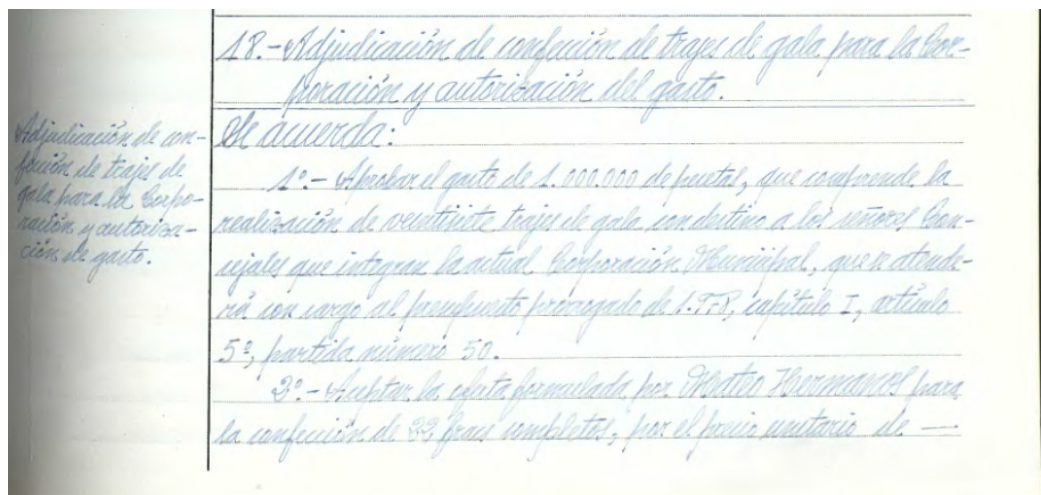 18.- Adjudicación de confección de trajes de gala para la Cor-
poración y autorización del gasto.
Adjudicación de con-
fección de trajes de
gala para la Corpo-
ración y autoriza-
ción de gasto.
Se acuerda:
1º.- Aprobar el gasto de 1.000.000 de pesetas, que comprende la
realización de veintisiete trajes de gala con destino a los señores Con-
cejales que integran la actual Corporación Municipal, que se atende-
rá con cargo al presupuesto prorrogado de 1.978, capítulo I, artículo
5º, partida número 50.
2º.- Aceptar la oferta formulada por Mateo Hermanos para
la confección de 22 fracs completos, por el precio unitario de —